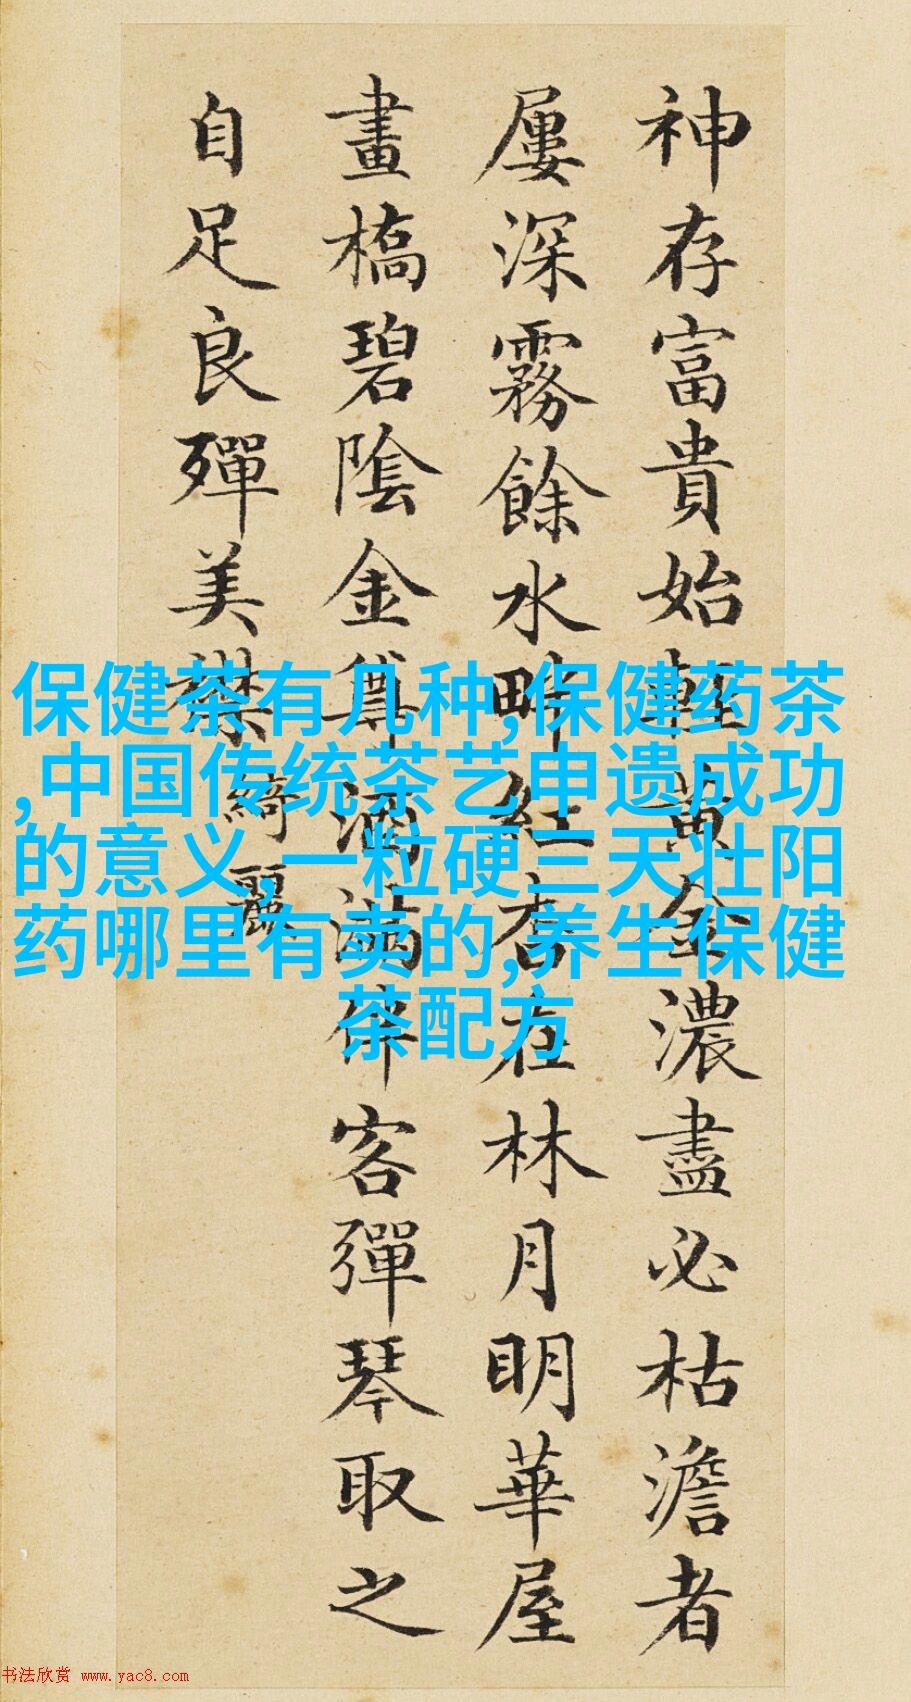 神存富貴始輕黃金濃盡必枯澹者
屢深霧餘水畔紅杏在林月明華屋
畫橋碧陰金尊酒滿伴客彈琴取之
自足良殫美襟 綺麗
保健茶有几种,保健药茶
,中国传统茶艺申遗成功
的意义,一粒硬三天壮阳
药哪里有卖的,养生保健
茶配方
书法欣赏 www.yac8.com